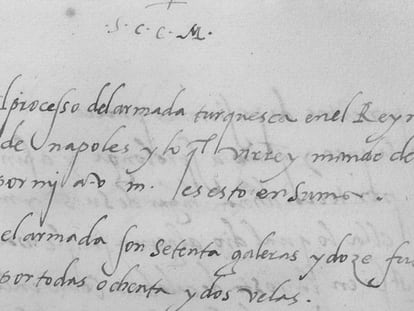 . S . C . C . M .
l processo del armada turquesca en el Rey
de napoles y lo q̃ll virrey mando de
por mi a . v . m . es esto en Suma .
el armada son setenta galeras y doze fu
por todas ochenta y dos velas .